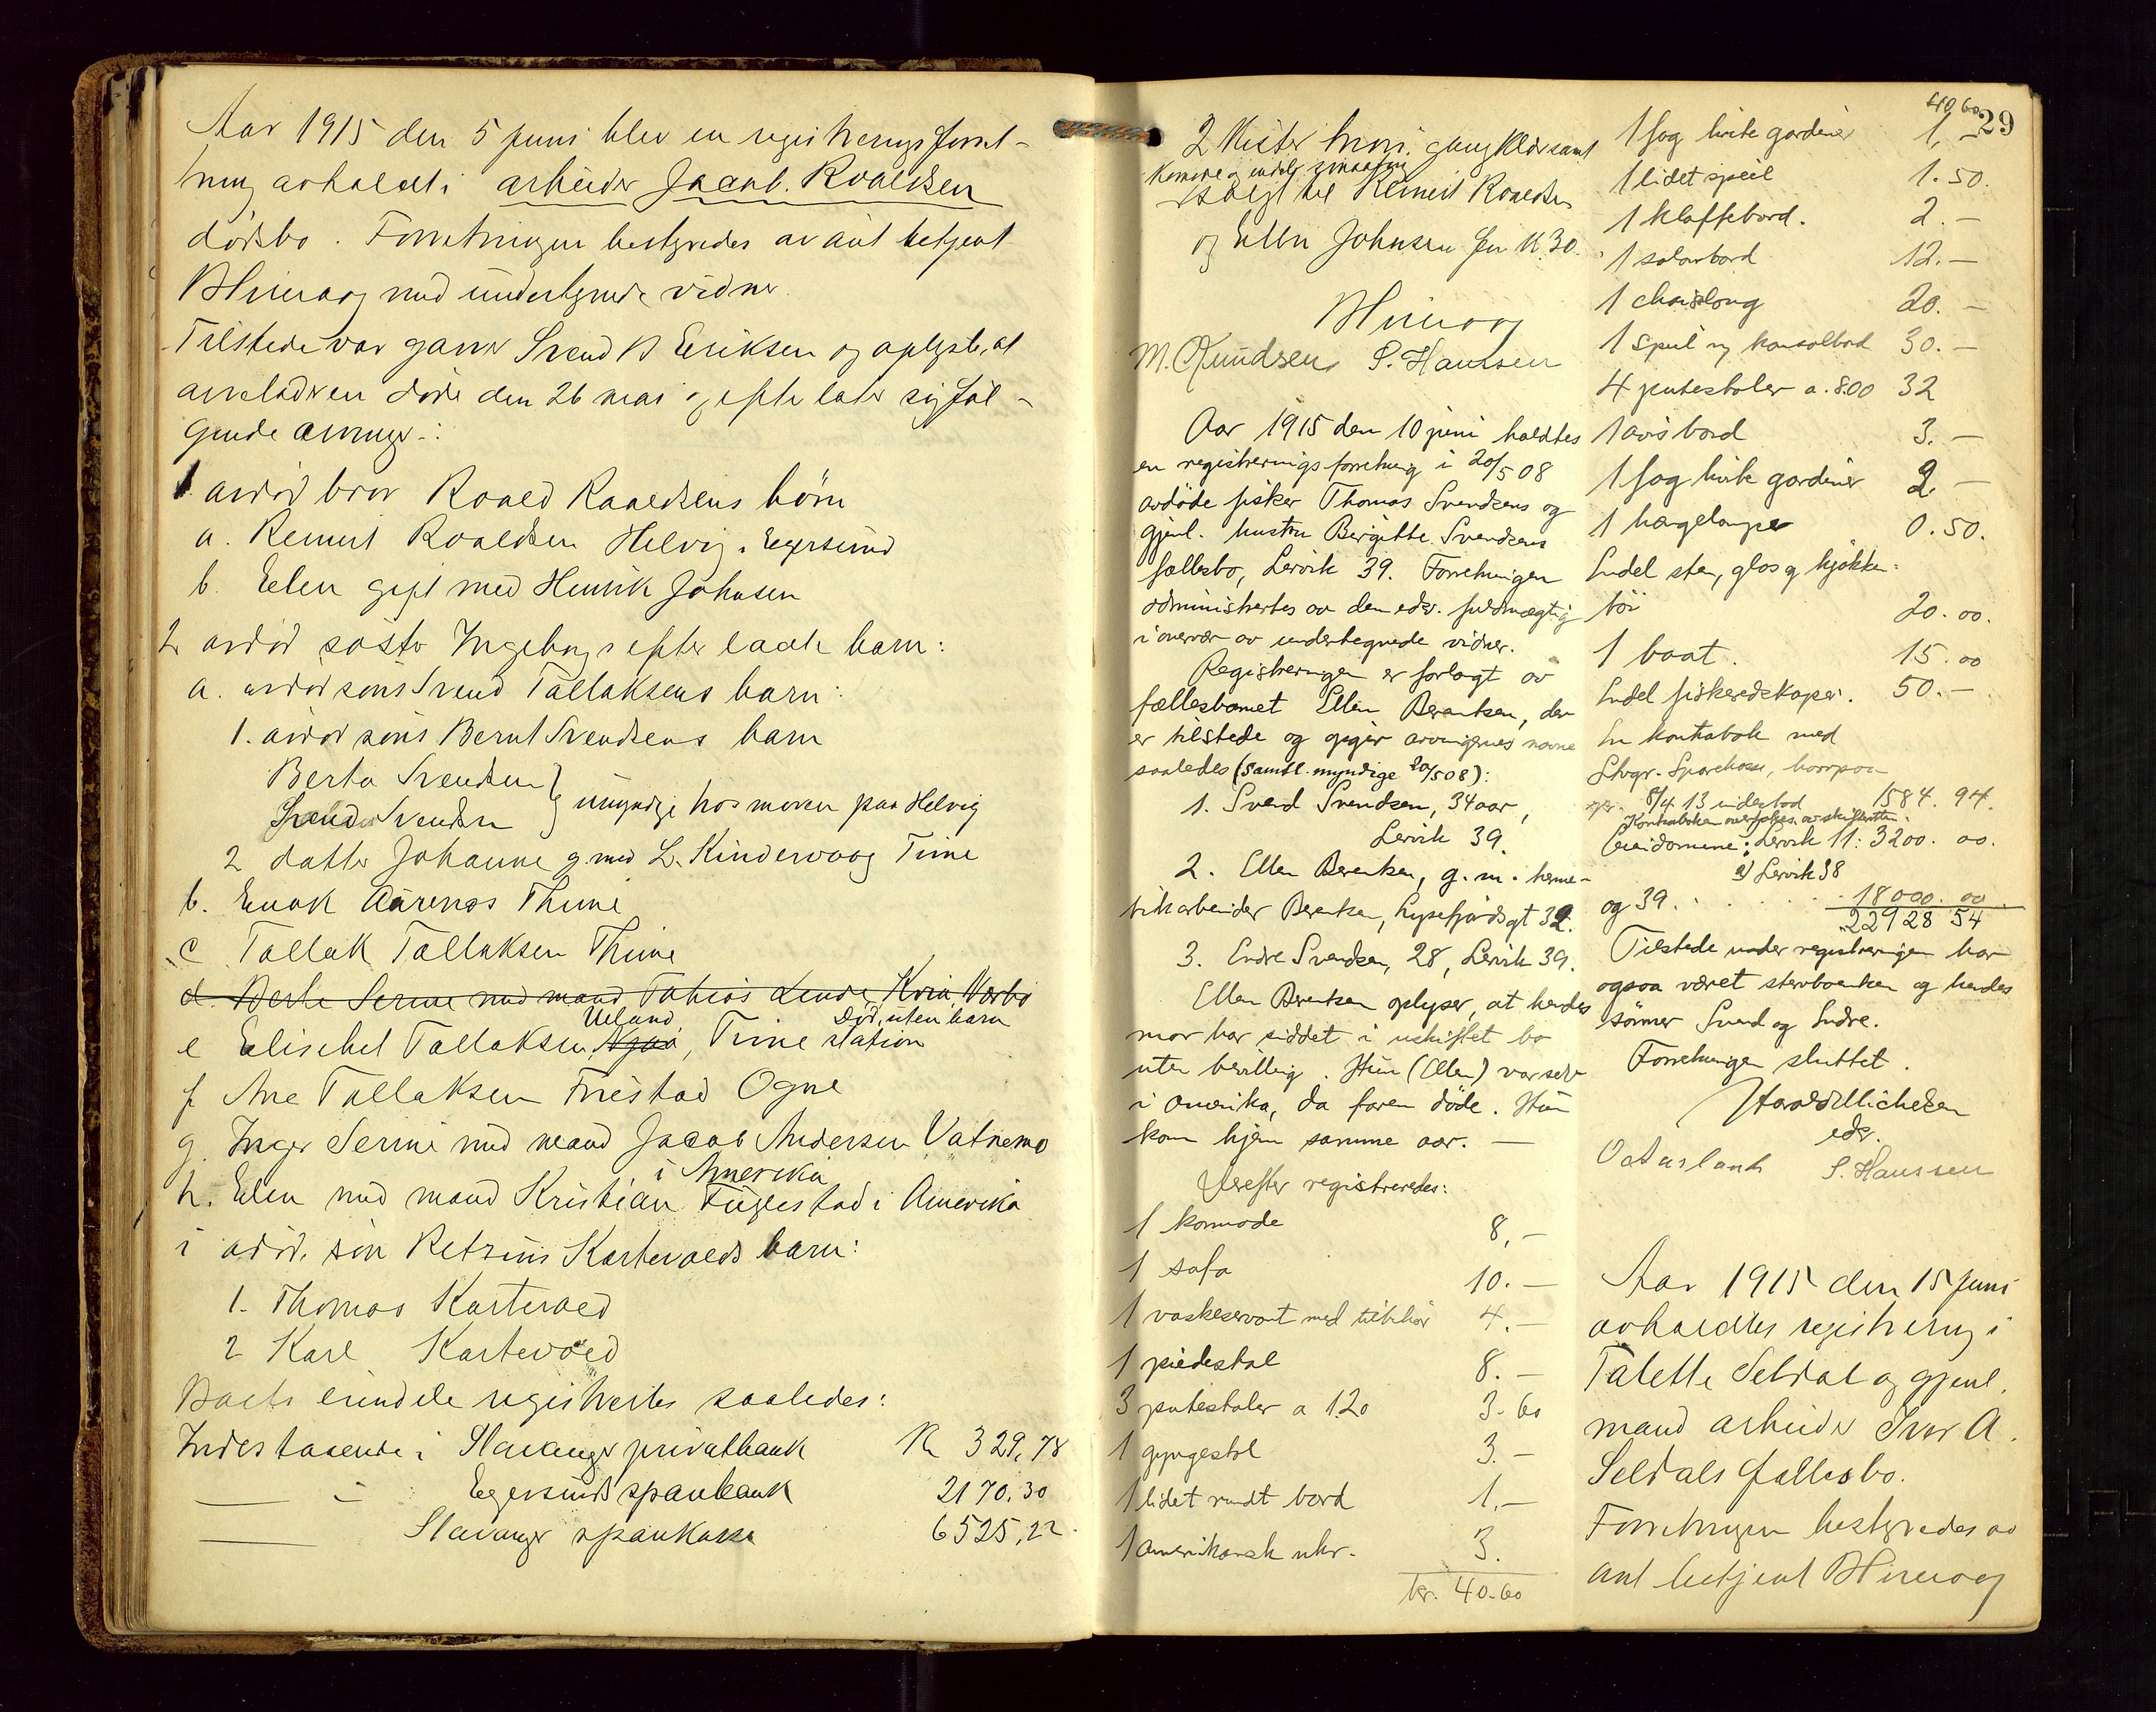 Aar 1915 den 5 juni blev en registreringsforret-
ning avholdt i arbeider Jacob. Roaldsen
dødsbo. Forretningen bestyredes av aut betjent
med undertegnede vidner.
Tilstede var garver Svend B Eeriksen og oplyste, at
avveladøren døde den 26 mai og efterlater sig føl-
gende arvinger:
1 avdød bror Roald Roaldsens børn
a. Reinert Roaldsen Helvig, Eegersund
b. Eelen gift med Henrik Johnsen
2 avdød søster Ingeborgs efterladte barn:
a. avdød søns Svend Tallaksens barn:
1. avdød søns Bernt Svendsens barn
Berta Svendsen
Svend Svendsen } umyndige hos moren paa Helvig
2 datter Johanne g. med L. Kindervaag Time
b. Enok Aarenes Thime
c Tallak Tallaksen Thime
d. Berte Serine med mand Tobias Lende, Kvia, Værbø
Ueland død, uten barn
e Eelisebet Tallaksen, Njaa, Time station
f Ane Tallaksen Friestad Ogne
g. Inger Serine med mand Jacob Andersen Vatnemo
i Amerika
h. Elen med mand Kristian Fuglestad i Amerika
i avdød. søn Petrus Kartevolds barn:
1. Thomas Kartevold
2 Karl Kartevold
Boets eiendele registrertes saaledes:
Indestaaende i Stavanger privatbank Kr 329,78
— " — Egersunds sparebank 2170.30
— Stavanger sparekasse 6525,22
2 kister hvori gangklær samt
Komode og endel smaating
solgt til Reinert Roaldsen
og Ellen Johnsen for Kr 30.
M. Knudsen S. Hanssen
Aar 1915 den 10 juni holdtes
en registreringsforretning i 20/5 08
avdøde fisker Thomas Svendsens og
gjenl. hustru Birgitte Svendsens
fællesbo, Lervik 39. Forretningen
administrertes av den edsv. fuldmægtig
i overvær av undertegnede vidner.
Registreringen er forlangt av
fællesbarnet Ellen Berentsen, der
er tilstede og opgir arvingernes navne
saaledes (samtl. myndige 20/5 08):
1. Svend Svendsen, 34 aar,
Lervik 39.
2. Ellen Berentsen, g. m. herme-
tikarbeider Berentsen, Lysefjordsgt 32.
3. Endre Svendsen, 28, Lervik 39.
Ellen Berentsen oplyser, at hendes
mor har siddet i uskiftet bo
uten bevilling. Hun (Ellen) var selv
i Amerika, da faren døde. Hun
kom hjem samme aar. —
Derefter registreredes:
1 kommode 8,-
1 sofa 10.—
1 vaskeservant med tilbehør 4.—
1 piedestal 8.—
3 putestoler a 1.20 3.60
1 gyngestol 3.—
1 lidet rundt bord 1.—
1 amerikansk uhr. 3.
kr. 40.60
40.60
29
1 fag hvite gardiner 1,—
1 lidet speil 1.50.
1 klaffebord. 2.—
1 salonbord 12.—
1 chaislong 20.—
1 speil og konsolbord 30.—
4 putestoler a. 8.00 32
1 avisbord 3.—
1 fag hvite gardiner 2.—
1 hængelampe 0.50.
Endel sten, glas og kjøkken-
tøi 20.00.
1 baat. 15.00
Endel fiskeredskaper. 50.—
En kontrabok med
Stvgr. Sparekasse, hvorpaa
8/4 13 indestod 1584.94.
Kontraboken overleveres av skifteretten.
Eeiendomme: Lervik 11: 3200.00.
2) Lervik 38
og 39 . . . . 18000.00
22928 54
Tilstede under registreringen har
ogsaa været sterboenken og hendes
sønner Svend og Endre.
Forretningen sluttet.
Harald Michelsen
edsv.
O Aasland S. Hanssen
Aar 1915 den 15 juni
avholdtes registrering i
Talette Seldal og gjenl.
mand arbeider Ivar A.
Seldals fællesbo.
Forretningen bestyredes av
aut betjent